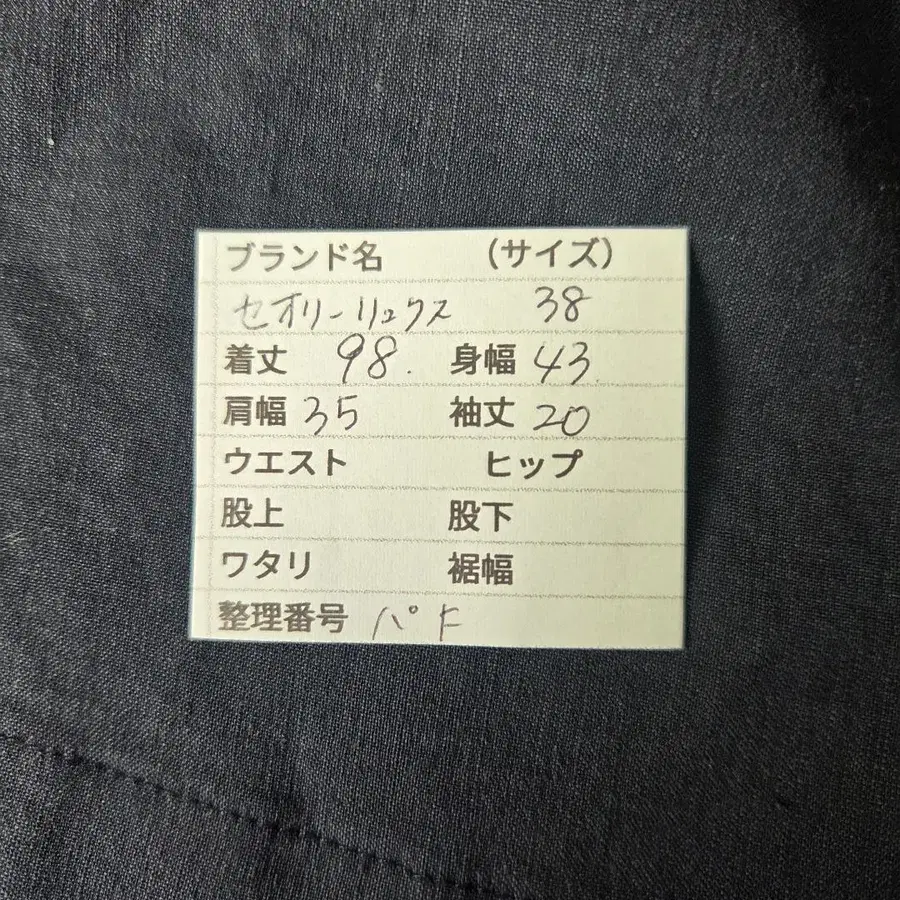 ブランド名 （サイズ）
セオリーリュクス 38
着丈 98. 身幅 43.
肩幅 35 袖丈 20
ウエスト ヒップ
股上 股下
ワタリ 裾幅
整理番号 パト